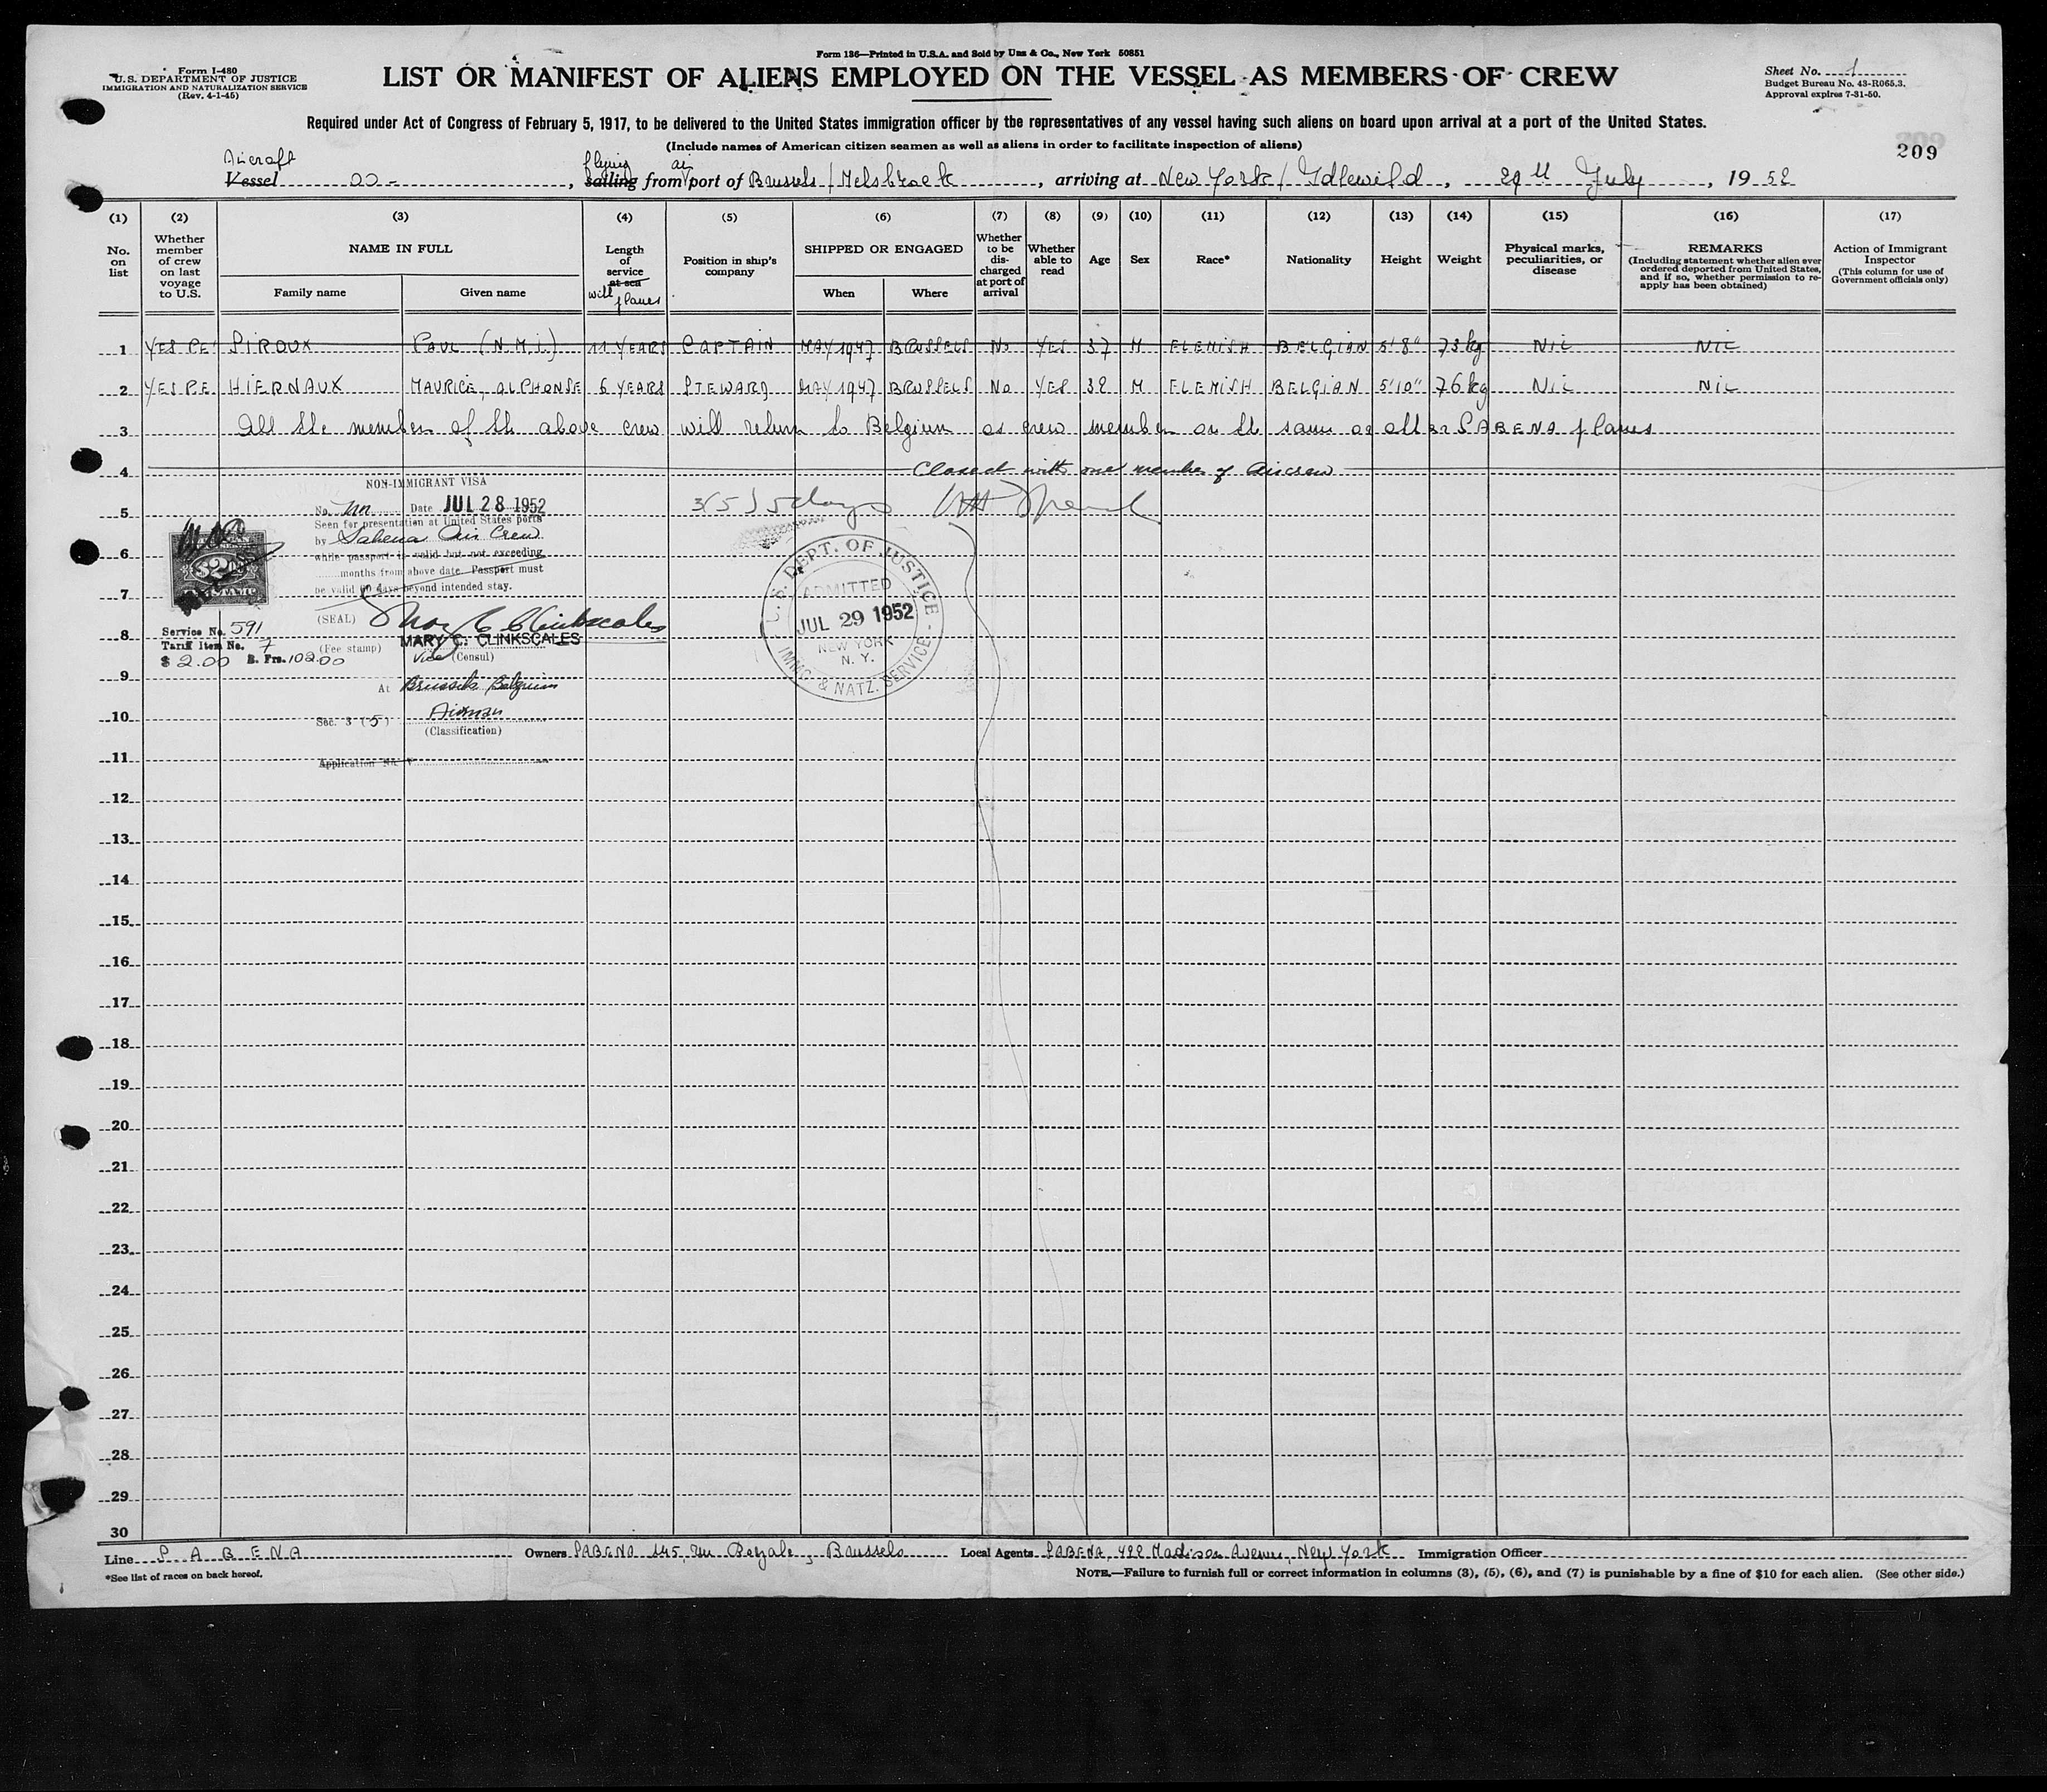 Form 136—Printed in U.S.A. and Sold by Unz & Co., New York 50851
Form I-480
U.S. DEPARTMENT OF JUSTICE
IMMIGRATION AND NATURALIZATION SERVICE
(Rev. 4-1-45)
LIST OR MANIFEST OF ALIENS EMPLOYED ON THE VESSEL AS MEMBERS OF CREW
Sheet No. 1
Budget Bureau No. 43-R065.3.
Approval expires 7-31-50.
Required under Act of Congress of February 5, 1917, to be delivered to the United States immigration officer by the representatives of any vessel having such aliens on board upon arrival at a port of the United States.
(Include names of American citizen seamen as well as aliens in order to facilitate inspection of aliens)
209
Aircraft flying air
Vessel OO- , sailing from port of Brussels / Melsbroek , arriving at New York / Idlewild , 29th July , 1952
(1) (2) (3) (4) (5) (6) (7) (8) (9) (10) (11) (12) (13) (14) (15) (16) (17)
No. on list
Whether member of crew on last voyage to U.S.
NAME IN FULL
Family name
Given name
Length of service at sea
with planes
Position in ship's company
SHIPPED OR ENGAGED
When
Where
Whether to be discharged at port of arrival
Whether able to read
Age
Sex
Race*
Nationality
Height
Weight
Physical marks, peculiarities, or disease
REMARKS
(Including statement whether alien ever ordered deported from United States, and if so, whether permission to reapply has been obtained)
Action of Immigrant Inspector
(This column for use of Government officials only)
1 YES PE PIROUX PAUL (N.M.I.) 11 YEARS CAPTAIN MAY 1947 BRUSSELS No YES 37 M FLEMISH BELGIAN 5'8" 73 kg Nil Nil
2 YES P.E. HIERNAUX MAURICE, ALPHONSE 6 YEARS STEWARD MAY 1947 BRUSSELS No YES 32 M FLEMISH BELGIAN 5'10" 76 kg Nil Nil
3 All the member of the above crew will return to Belgium as crew member on the same or other SABENA planes
4 Closed with one member of Aircrew
NON-IMMIGRANT VISA
No. Date JUL 28 1952
5 3(5) 5 days
Seen for presentation at United States ports
by Sabena Air Crew
while passport is valid but not exceeding
6
months from above date. Passport must
be valid 60 days beyond intended stay.
7
$2.00
STAMP
U.S. DEPT. OF JUSTICE
ADMITTED
JUL 29 1952
NEW YORK
N. Y.
IMMG. & NATZ. SERVICE
(SEAL) Mary C Clinkscales
8 MARY C. CLINKSCALES
Service No. 591
Tariff Item No. 7
$ 2.00 B. Frs. 102.00
(Fee stamp) Vice (Consul)
9
At Brussels Belgium
10 Sec. 3 (5) Airman
(Classification)
11
Application No. V
12
13
14
15
16
17
18
19
20
21
22
23
24
25
26
27
28
29
30
Line SABENA Owners SABENA 145, rue Royale, Brussels Local Agents SABENA, 422 Madison Avenue, New York Immigration Officer
*See list of races on back hereof.
NOTE.—Failure to furnish full or correct information in columns (3), (5), (6), and (7) is punishable by a fine of $10 for each alien. (See other side.)